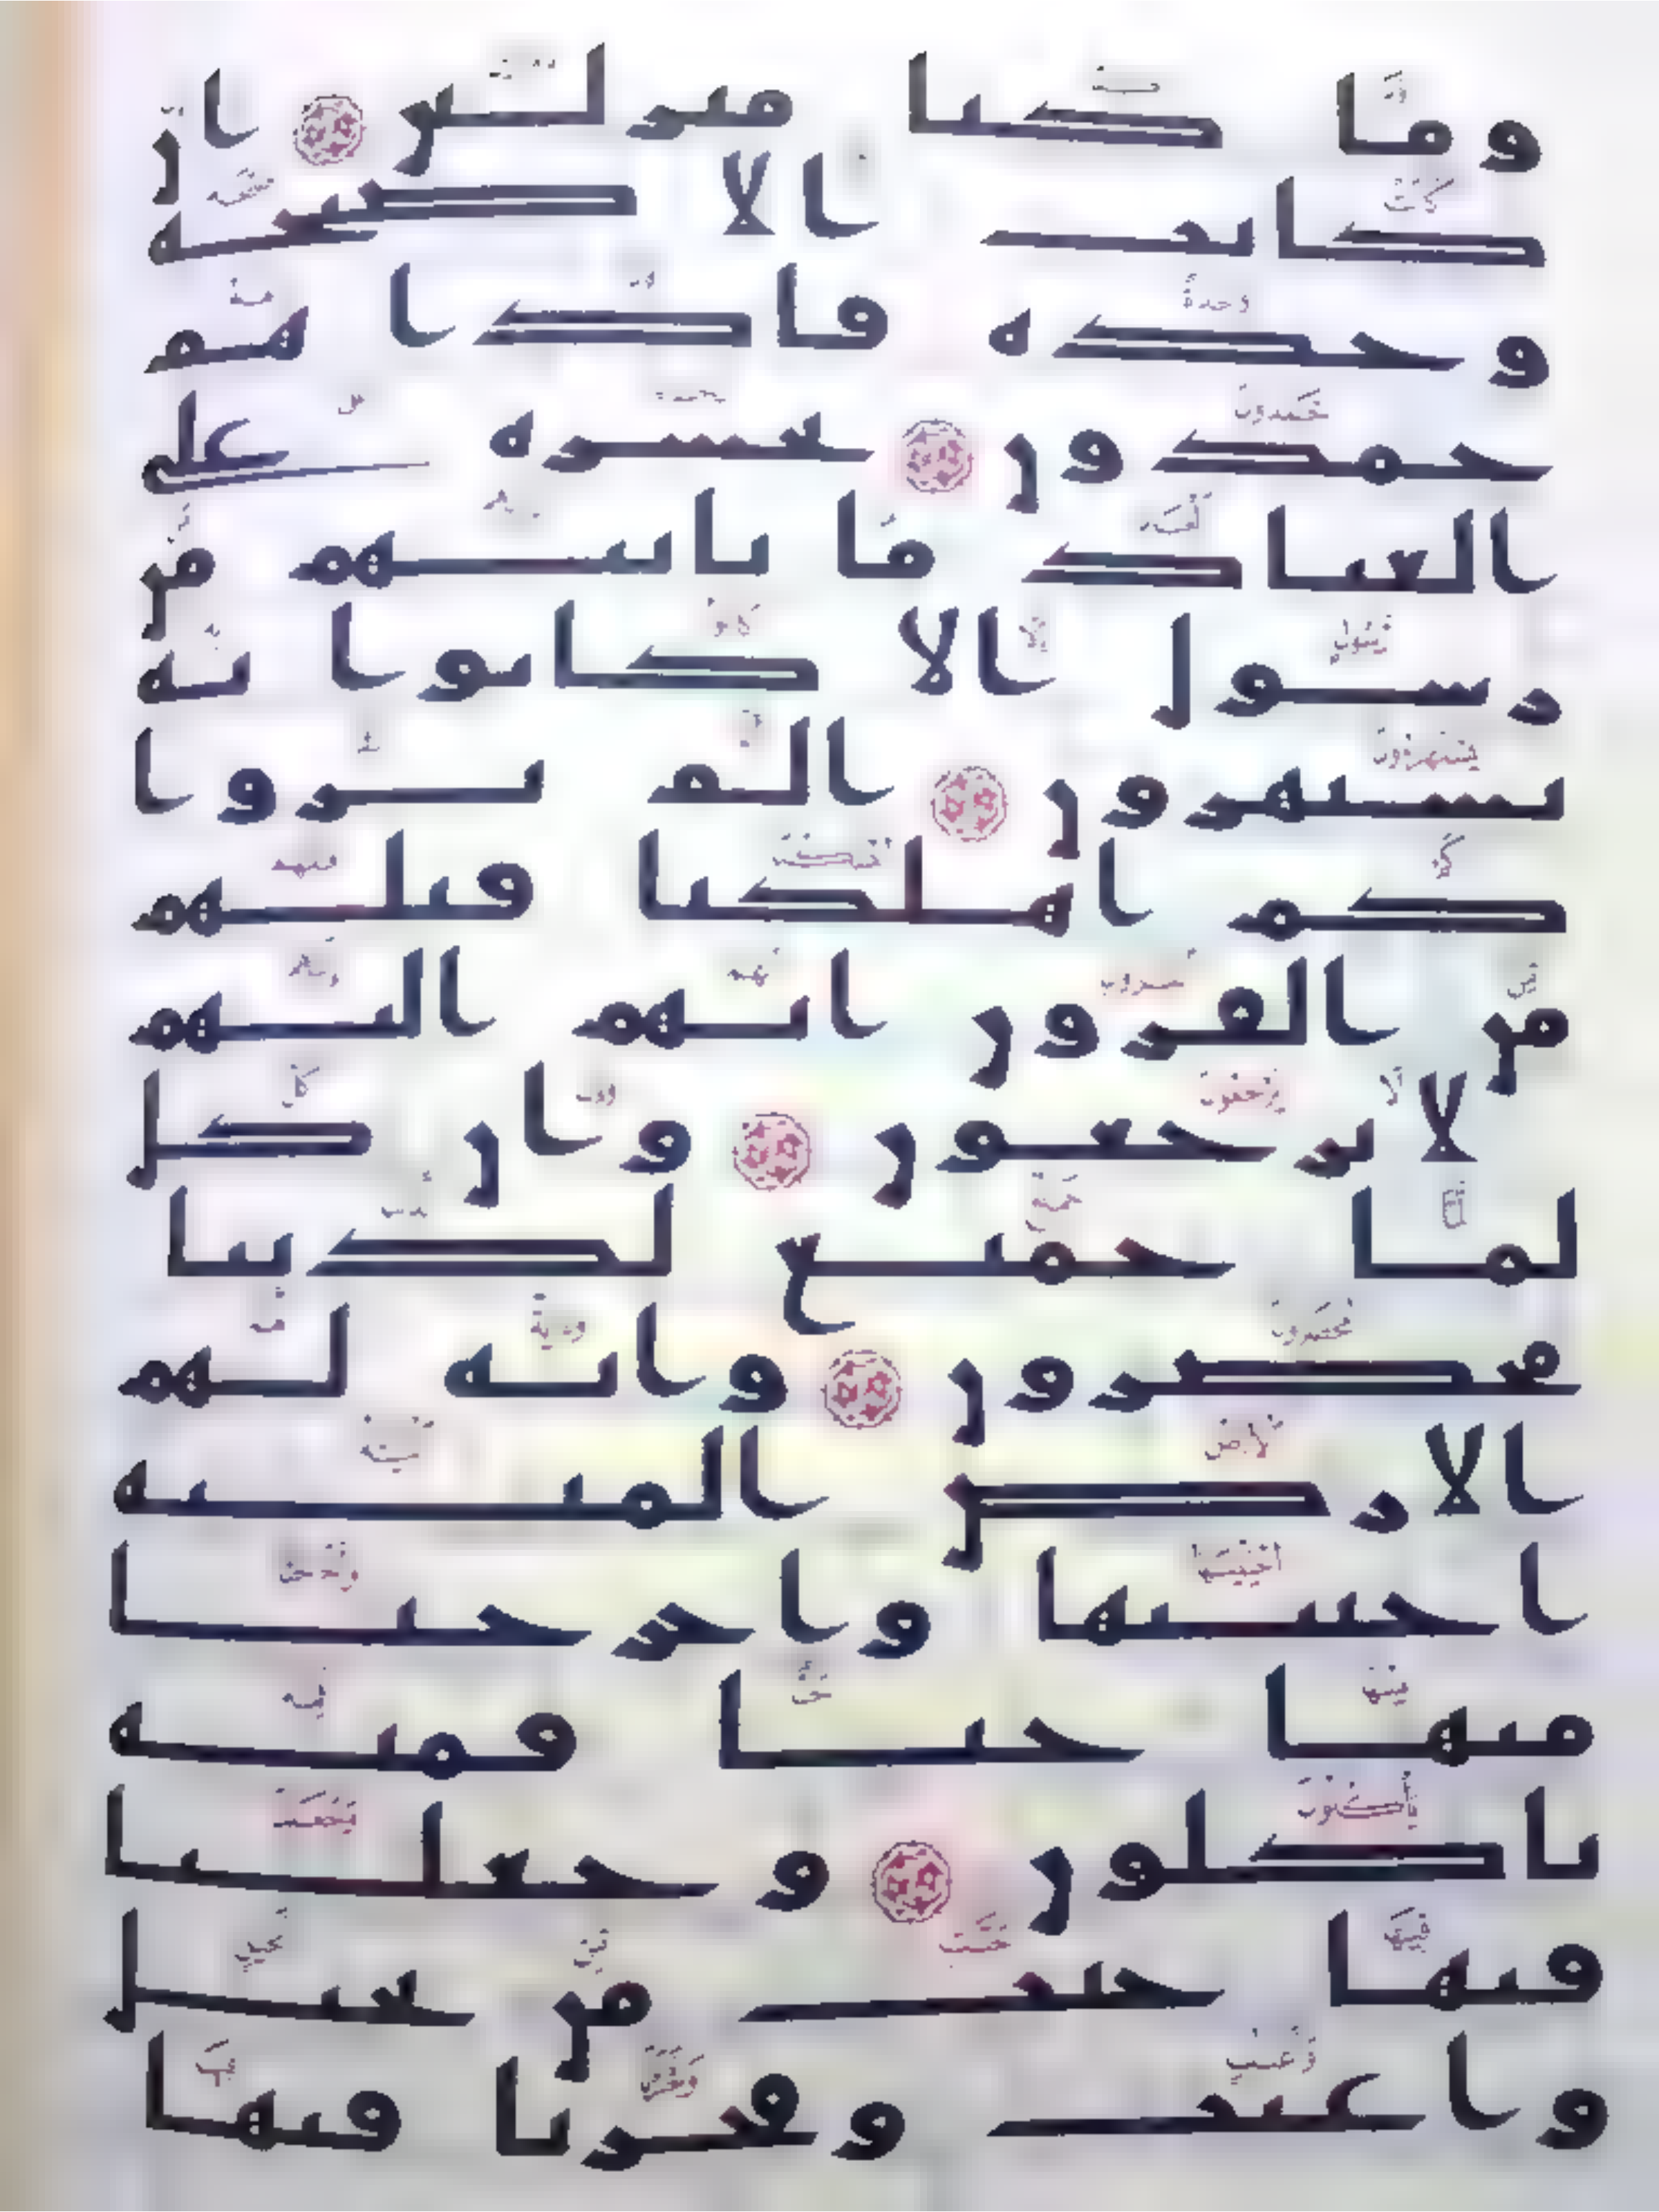 وما كنا منزلين ان
كانت الا صيحة
وحدة فاذا هم
خمدون يحسرة على
العباد ما ياتيهم من
رسول الا كانوا به
يستهزون الم يروا
كم اهلكنا قبلهم
من القرون انهم اليهم
لا يرجعون وان كل
لما جميع لدينا
محضرون واية لهم
الارض الميتة
احيينها واخرجنا
منها حبا فمنه
ياكلون وجعلنا
فيها جنت من نخيل
واعنب وفجرنا فيها